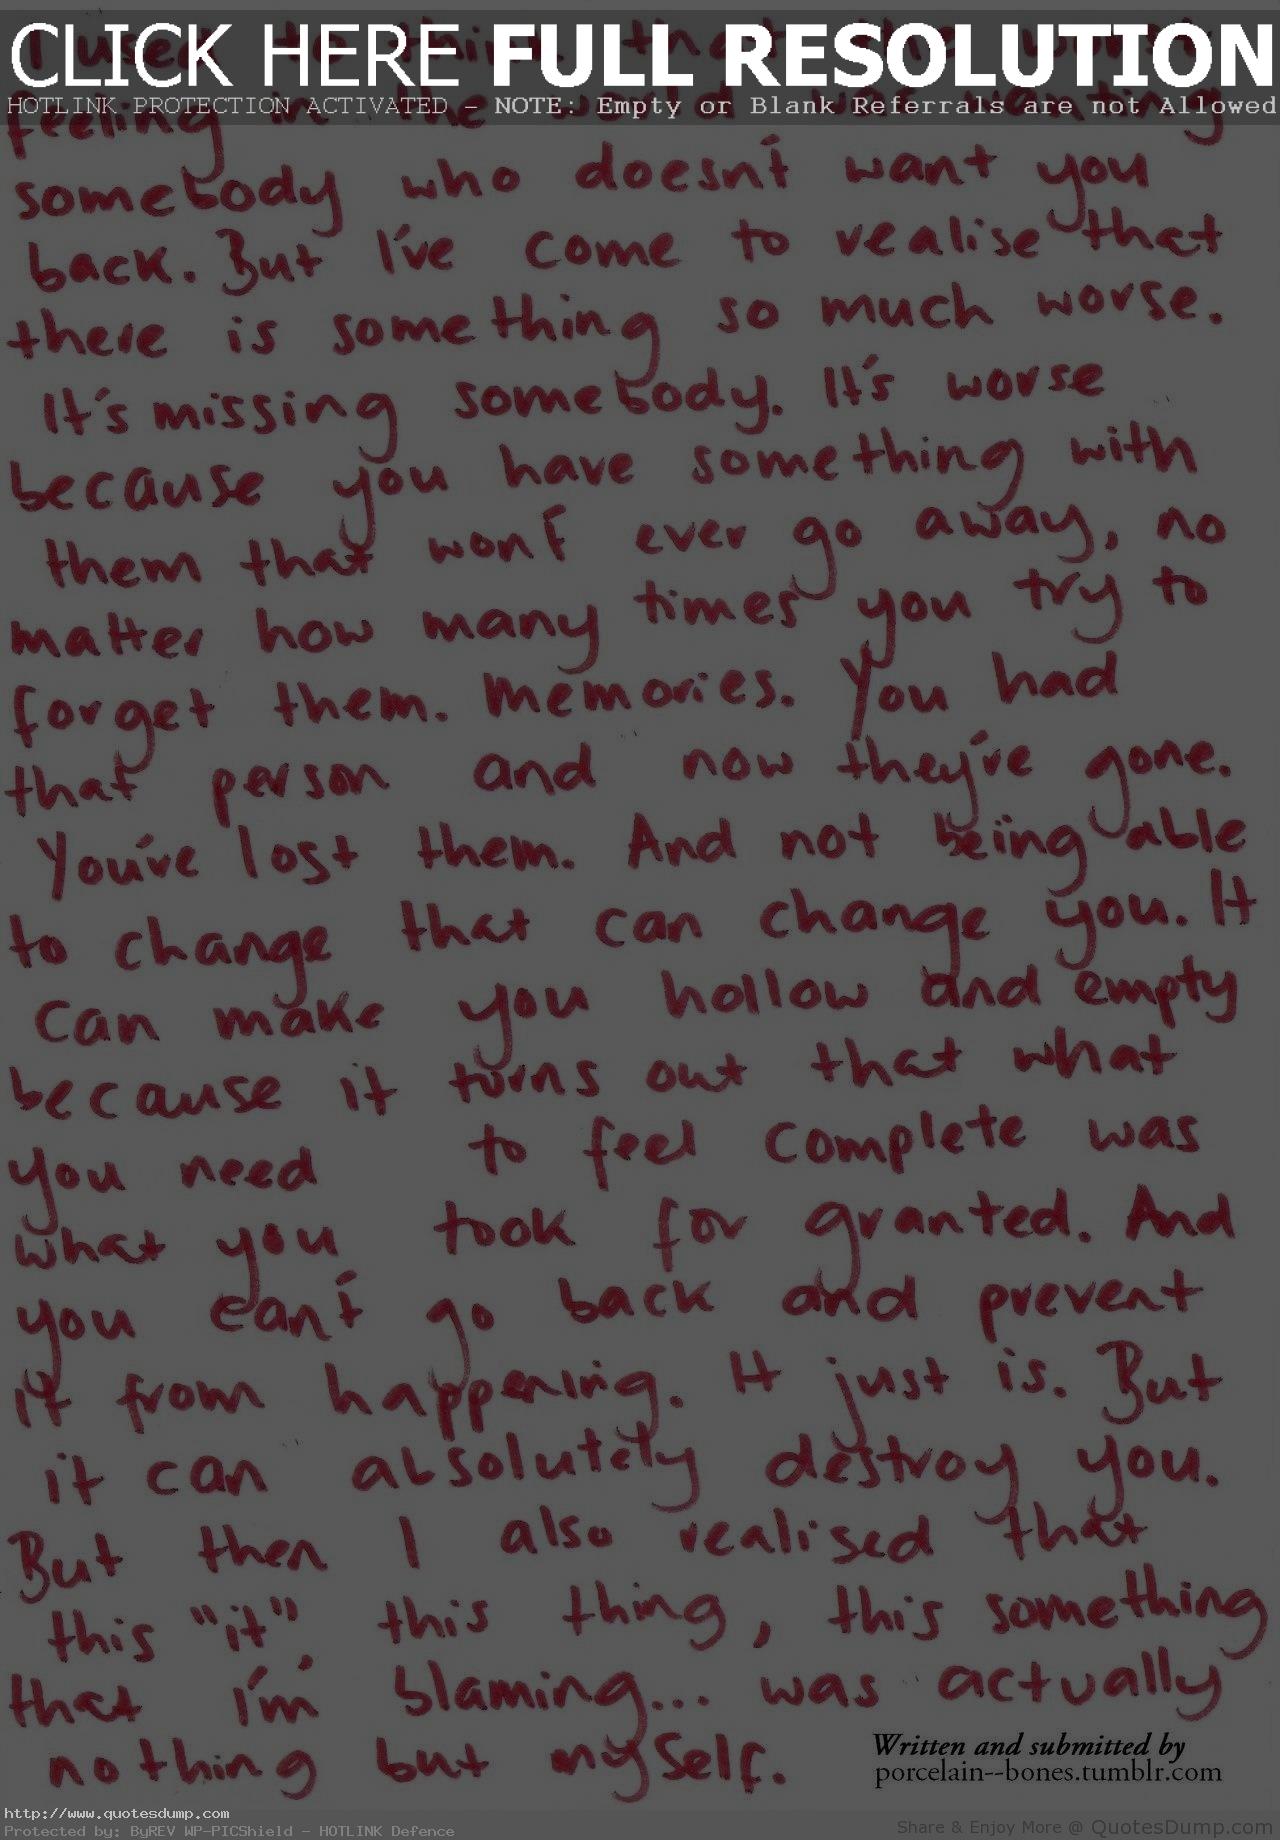 CLICK HERE FULL RESOLUTION
HOTLINK PROTECTION ACTIVATED - NOTE: Empty or Blank Referrals are not Allowed
I used to think that the worst
feeling in the world was wanting
somebody who doesn't want you
back. But I've come to realise that
there is something so much worse.
It's missing somebody. It's worse
because you have something with
them that won't ever go away, no
matter how many times you try to
forget them. Memories. You had
that person and now they're gone.
You've lost them. And not being able
to change that can change you. It
can make you hollow and empty
because it turns out that what
you need to feel complete was
what you took for granted. And
you can't go back and prevent
it from happening. It just is. But
it can absolutely destroy you.
But then I also realised that
this "it", this thing, this something
that I'm blaming... was actually
nothing but myself.
Written and submitted by
porcelain--bones.tumblr.com
http://www.quotesdump.com
Protected by: ByREV WP-PICShield - HOTLINK Defence
Share & Enjoy More @ QuotesDump.com